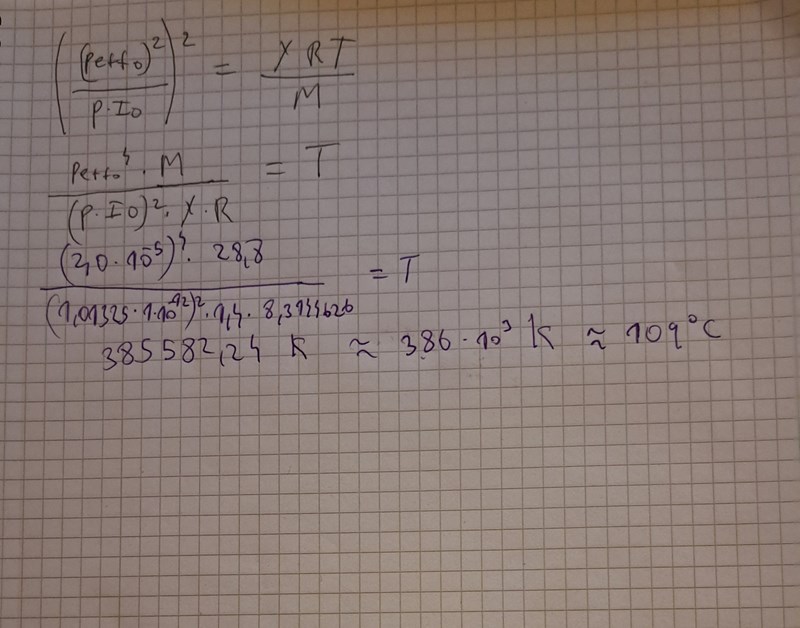 ((peff₀)²/p·I₀)² = γRT/M
peff₀⁴·M/(p·I₀)²·γ·R = T
(2,0·10⁻⁵)⁴·28,8/(1,01325·1·10⁻¹²)²·1,4·8,3144626 = T
385582,24 K ≈ 386·10³ K ≈ 109°C